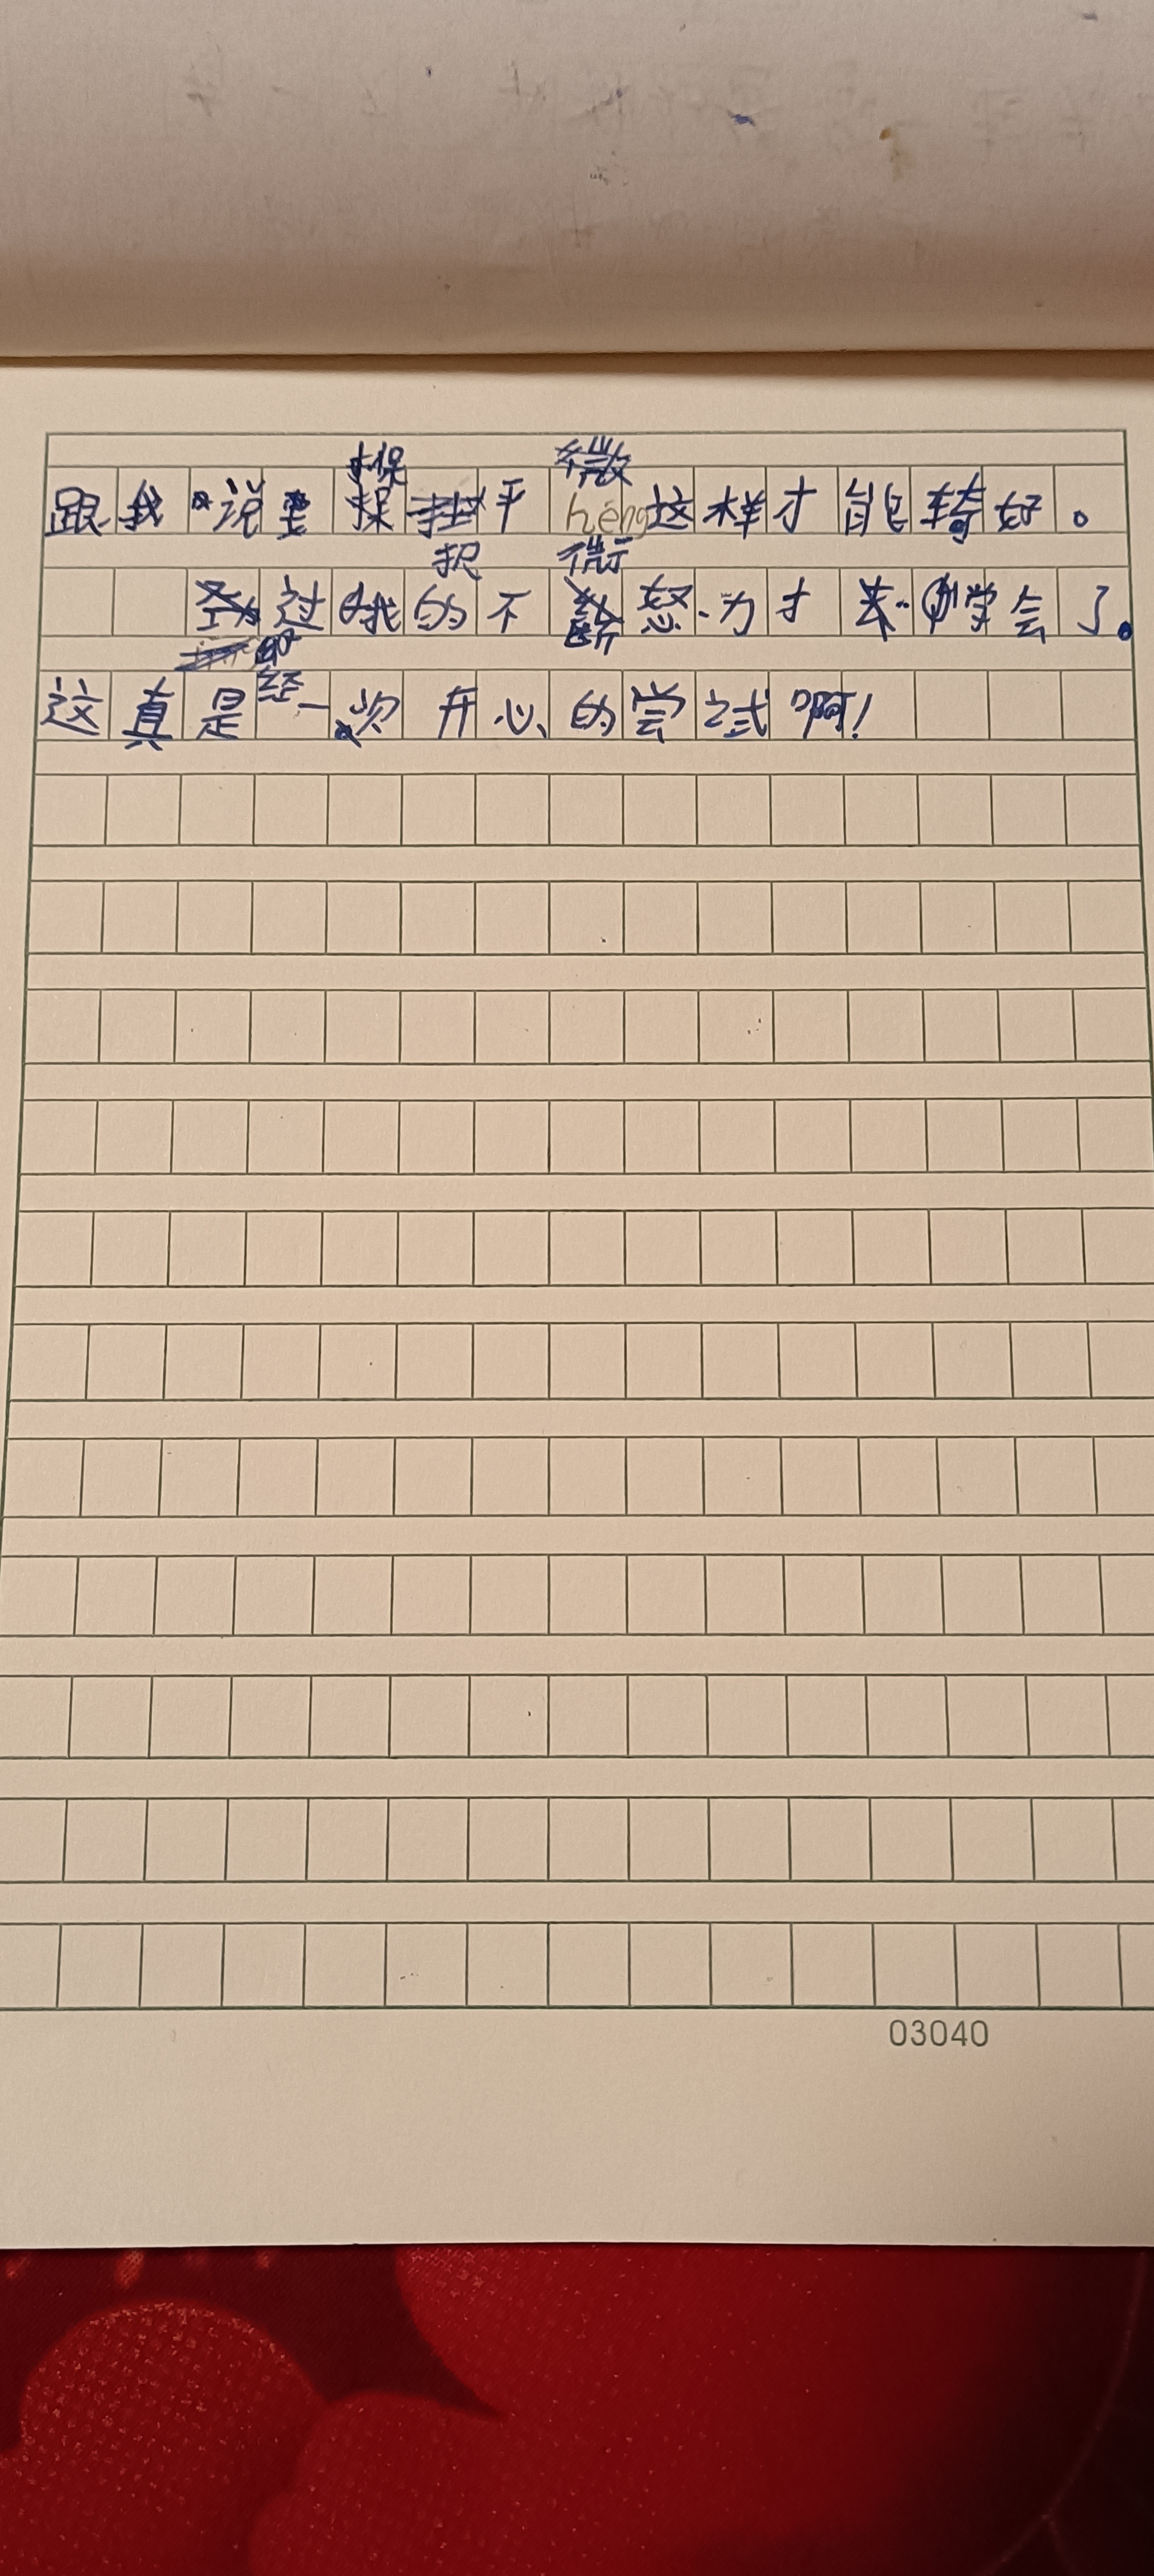 跟我说要保平héng这样才能骑好。
过我的不怒力才学会了。
这真是一次开心的尝试啊!
03040